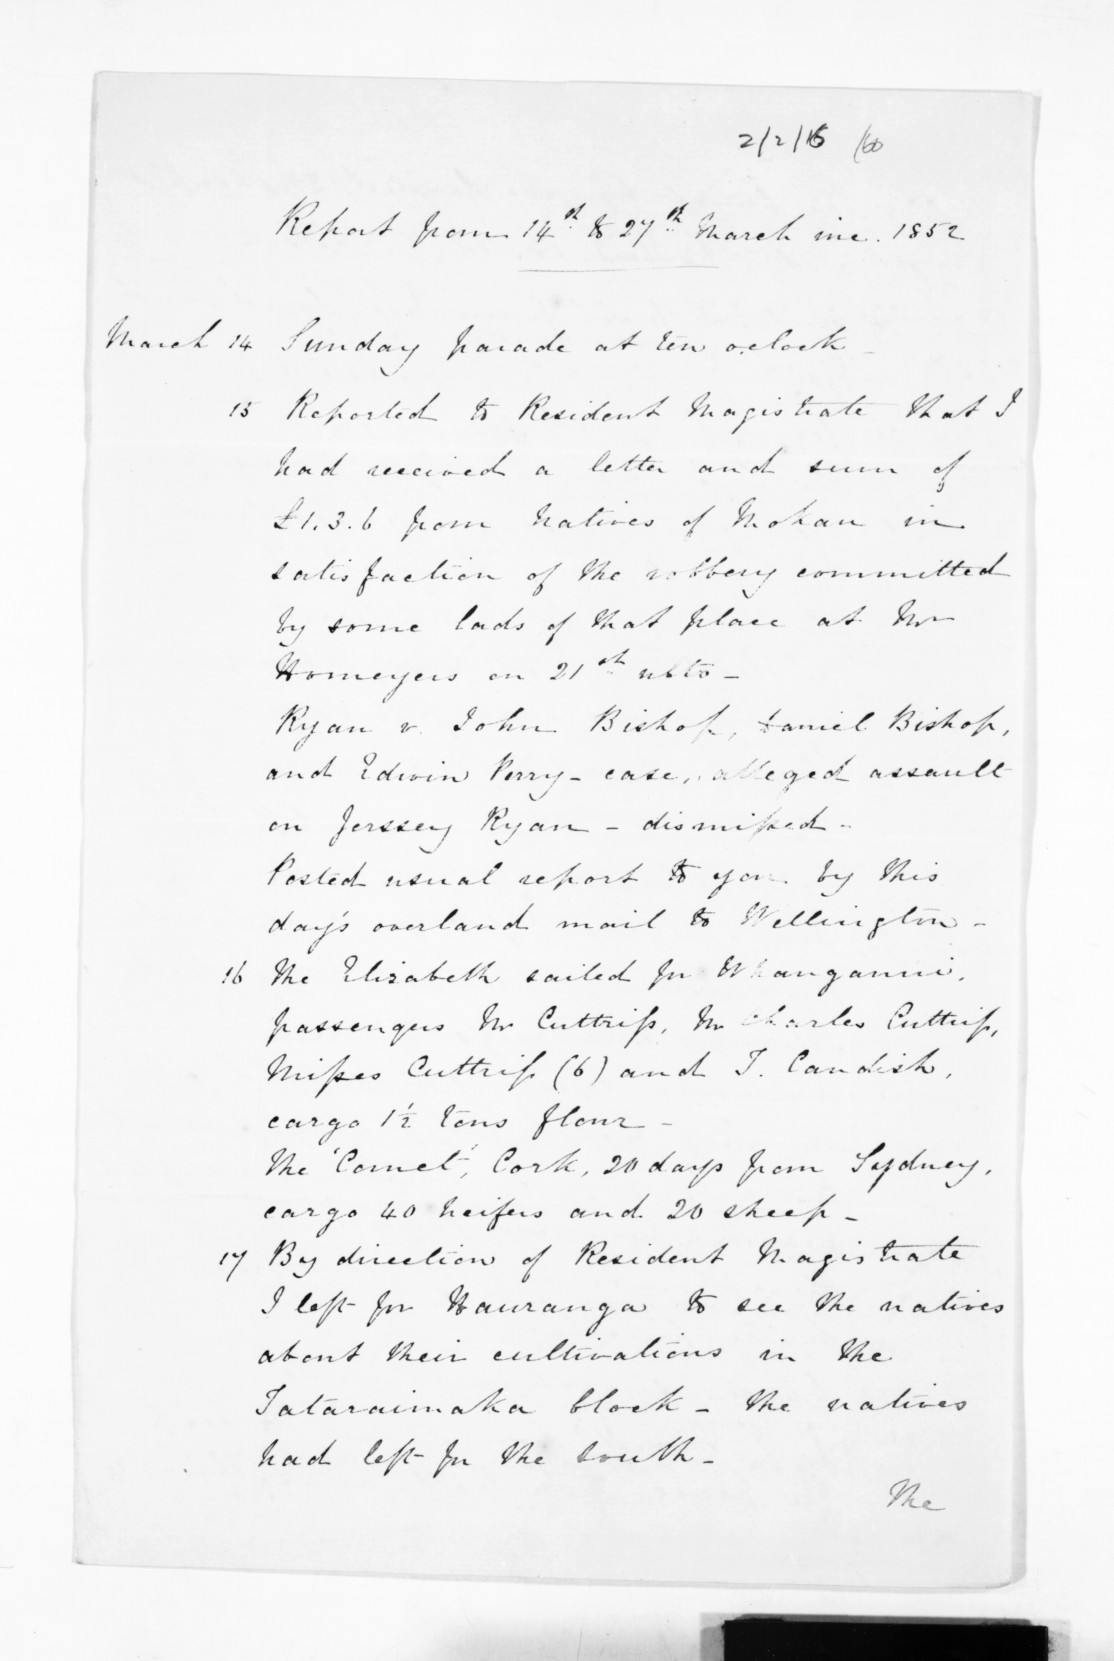 2/2/16
Report from 14th to 27th March inc. 1852
March 14 Sunday parade at ten o'clock -
15 Reported to Resident Magistrate that I
had received a letter and sum of
£1.3.6 from Natives of Mokau in
satisfaction of the robbery committed
by some lads of that place at Mr
Homeyers on 21st ulto -
Ryan v. John Bishop, Daniel Bishop,
and Edwin Perry - case, alleged assault
on Jerssey Ryan - dismissed -
Posted usual report to you by this
day's overland mail to Wellington -
16 The Elizabeth sailed for Whanganui,
passengers Mr Cuttriss, Mr Charles Cuttriss,
Misses Cuttriss (6) and T. Candish,
cargo 1½ tons flour -
The 'Comet', Cork, 20 days from Sydney,
cargo 40 heifers and 20 sheep -
17 By direction of Resident Magistrate
I left for Hauranga to see the natives
about their cultivations in the
Tataraimaka block - the natives
had left for the South -
The